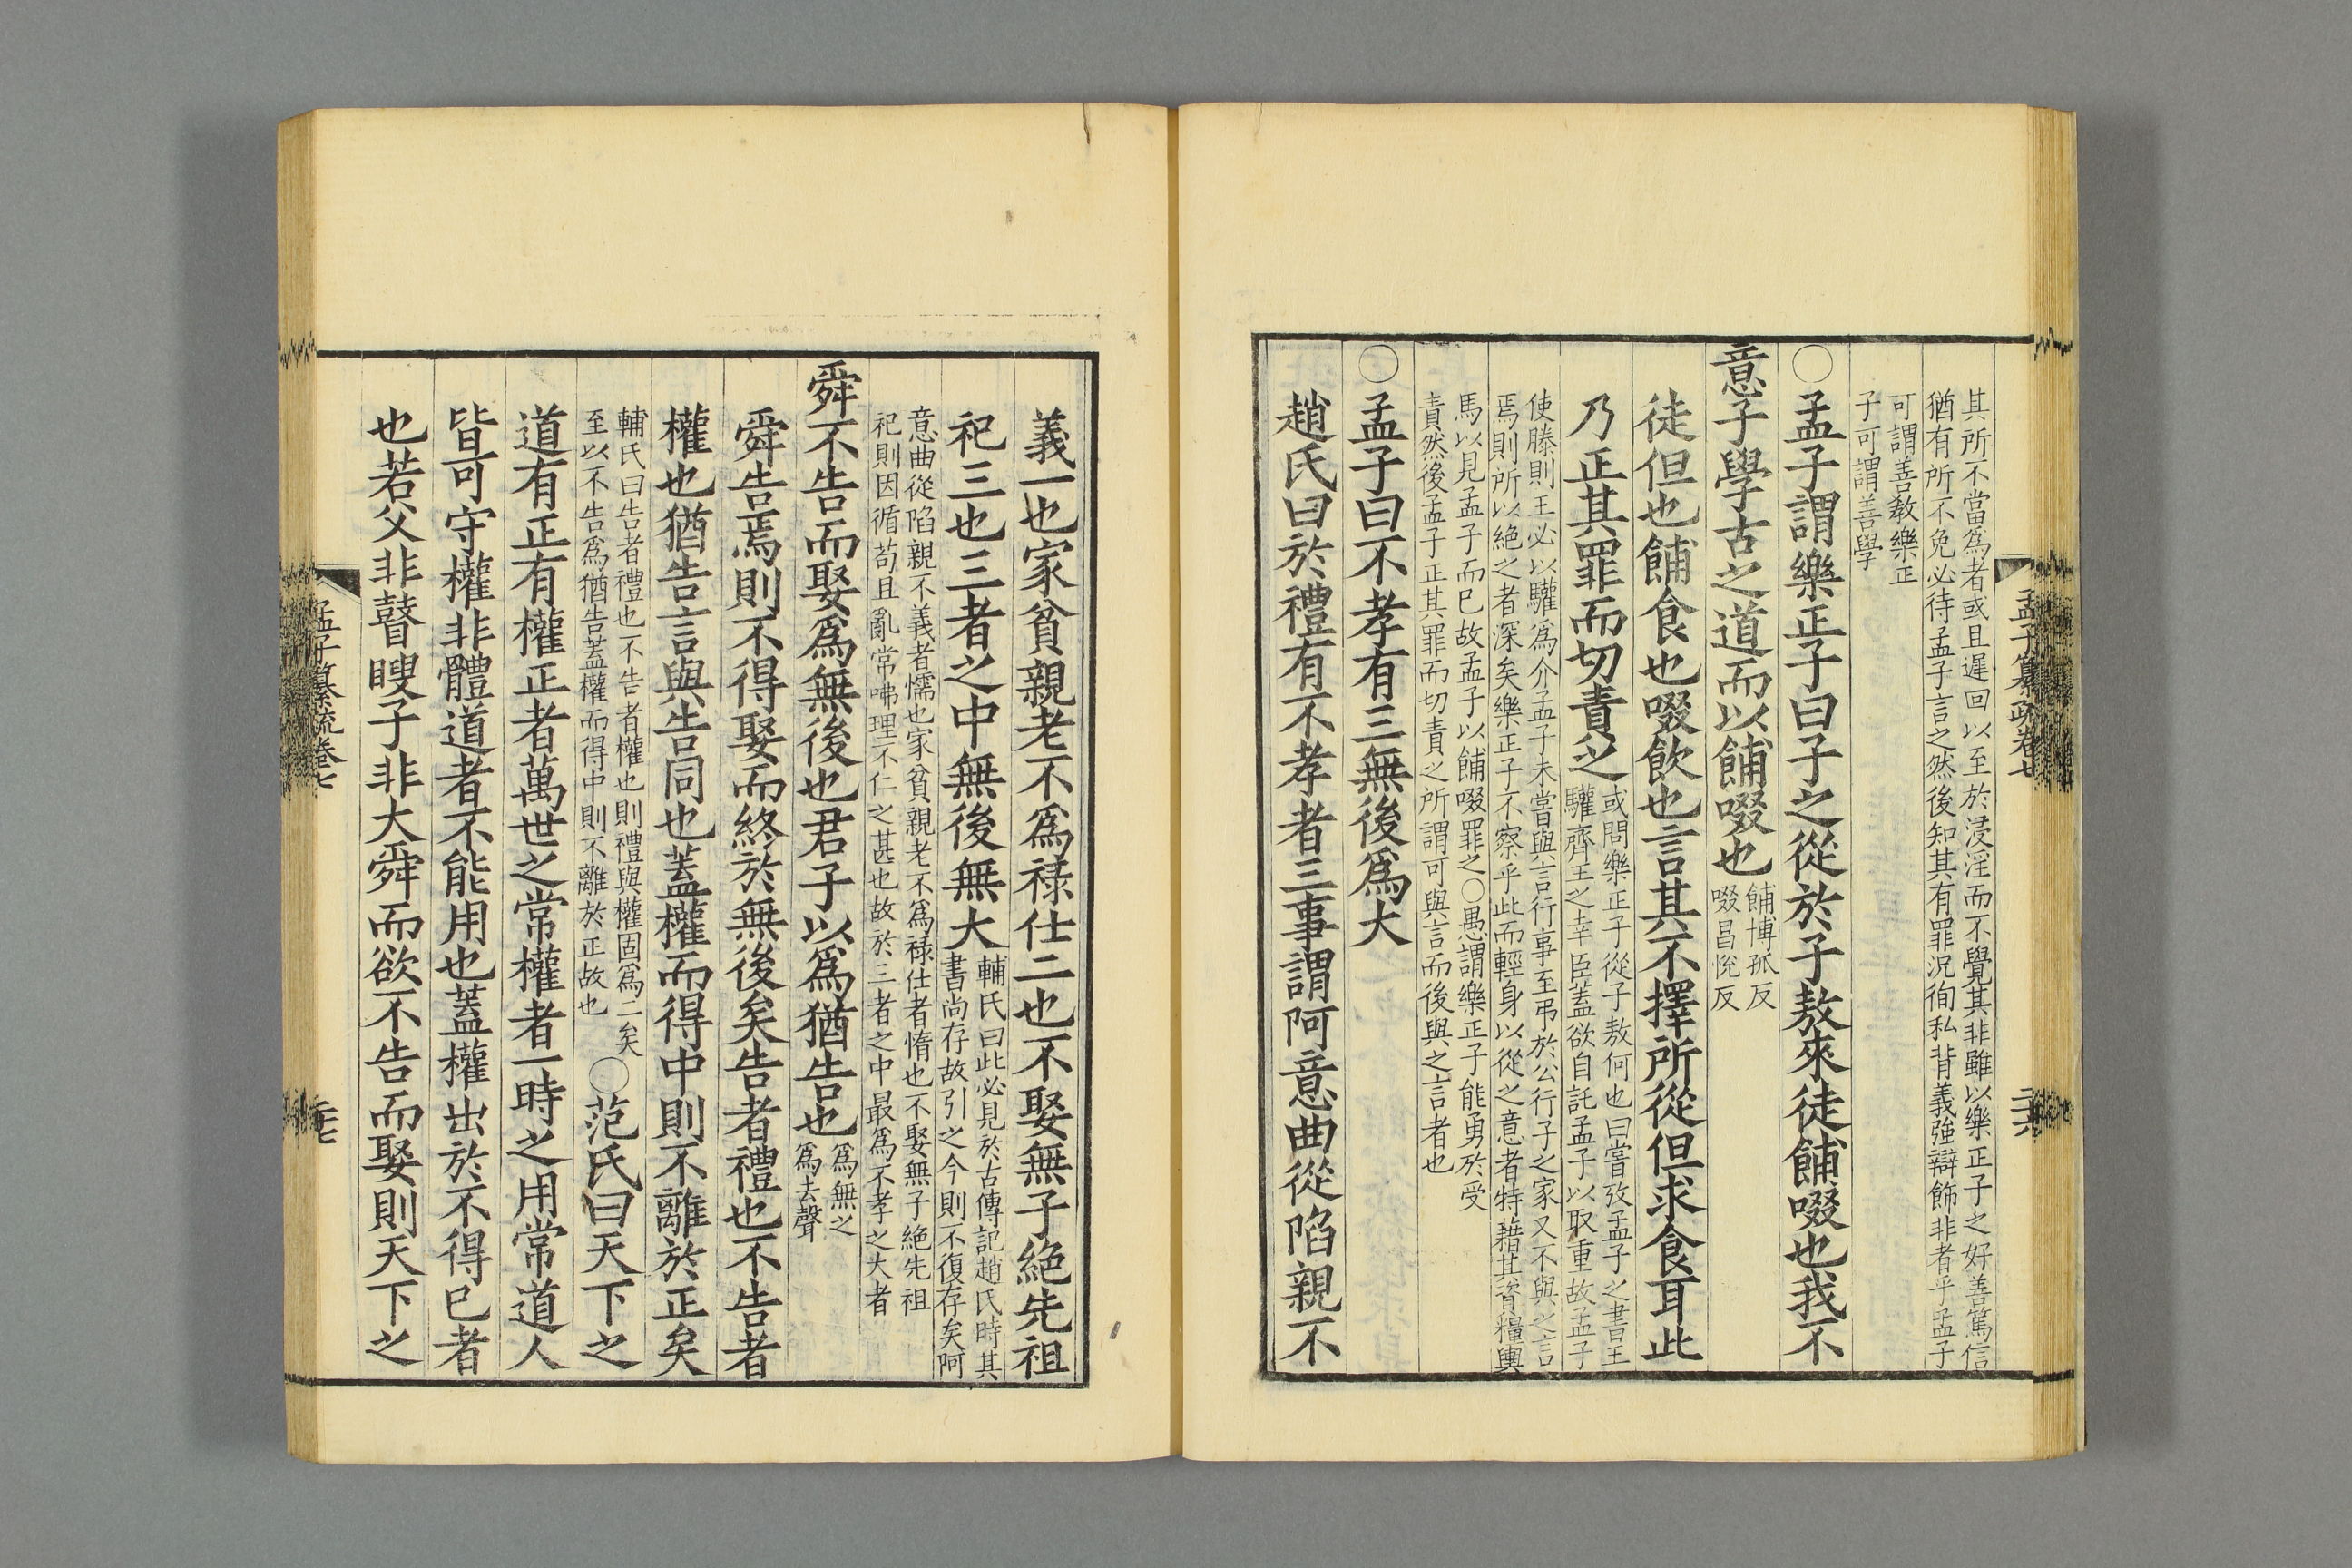 其所不當爲者或且遲回以至於浸淫而不覺其非雖以樂正子之好善篤信
猶有所不免必待孟子言之然後知其有罪況徇私背義強辯飾非者乎孟子
可謂善教樂正
子可謂善學
○孟子謂樂正子曰子之從於子敖來徒餔啜也我不
意子學古之道而以餔啜也
餔博孤反
啜昌悅反
徒但也餔食也啜飲也言其不擇所從但求食耳此
乃正其罪而切責之
或問樂正子從子敖何也曰嘗攷孟子之書王
驩齊王之幸臣蓋欲自託孟子以取重故孟子
使滕則王必以驩爲介孟子未嘗與言行事至弔於公行子之家又不與之言
焉則所以絶之者深矣樂正子不察乎此而輕身以從之意者特藉其資糧輿
馬以見孟子而巳故孟子以餔啜罪之○愚謂樂正子能勇於受
責然後孟子正其罪而切責之所謂可與言而後與之言者也
○孟子曰不孝有三無後爲大
趙氏曰於禮有不孝者三事謂阿意曲從陷親不
孟子纂疏卷七
二十六
義一也家貧親老不爲祿仕二也不娶無子絶先祖
祀三也三者之中無後無大
輔氏曰此必見於古傳記趙氏時其
書尚存故引之今則不復存矣阿
意曲從陷親不義者懦也家貧親老不爲祿仕者惰也不娶無子絶先祖
祀則因循苟且亂常咈理不仁之甚也故於三者之中最爲不孝之大者
舜不告而娶爲無後也君子以爲猶告也
爲無之
爲去聲
舜告焉則不得娶而終於無後矣告者禮也不告者
權也猶告言與告同也蓋權而得中則不離於正矣
輔氏曰告者禮也不告者權也則禮與權固爲二矣
至以不告爲猶告蓋權而得中則不離於正故也
○范氏曰天下之
道有正有權正者萬世之常權者一時之用常道人
皆可守權非體道者不能用也蓋權出於不得已者
也若父非瞽瞍子非大舜而欲不告而娶則天下之
孟子纂疏卷七
二十七